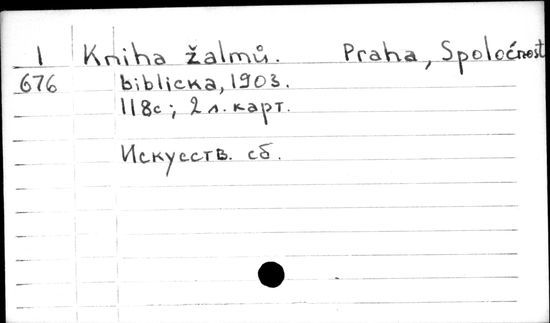 1 Kniha žalmů. Praha, Spoločnost
676 biblicka, 1903.
118с; 2 л. карт.
Искусств. сб.